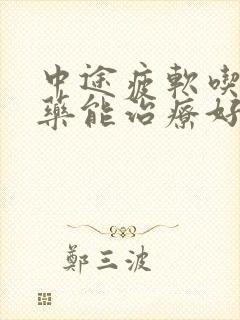 中途疲軟喫
藥能治療好
鄭三波